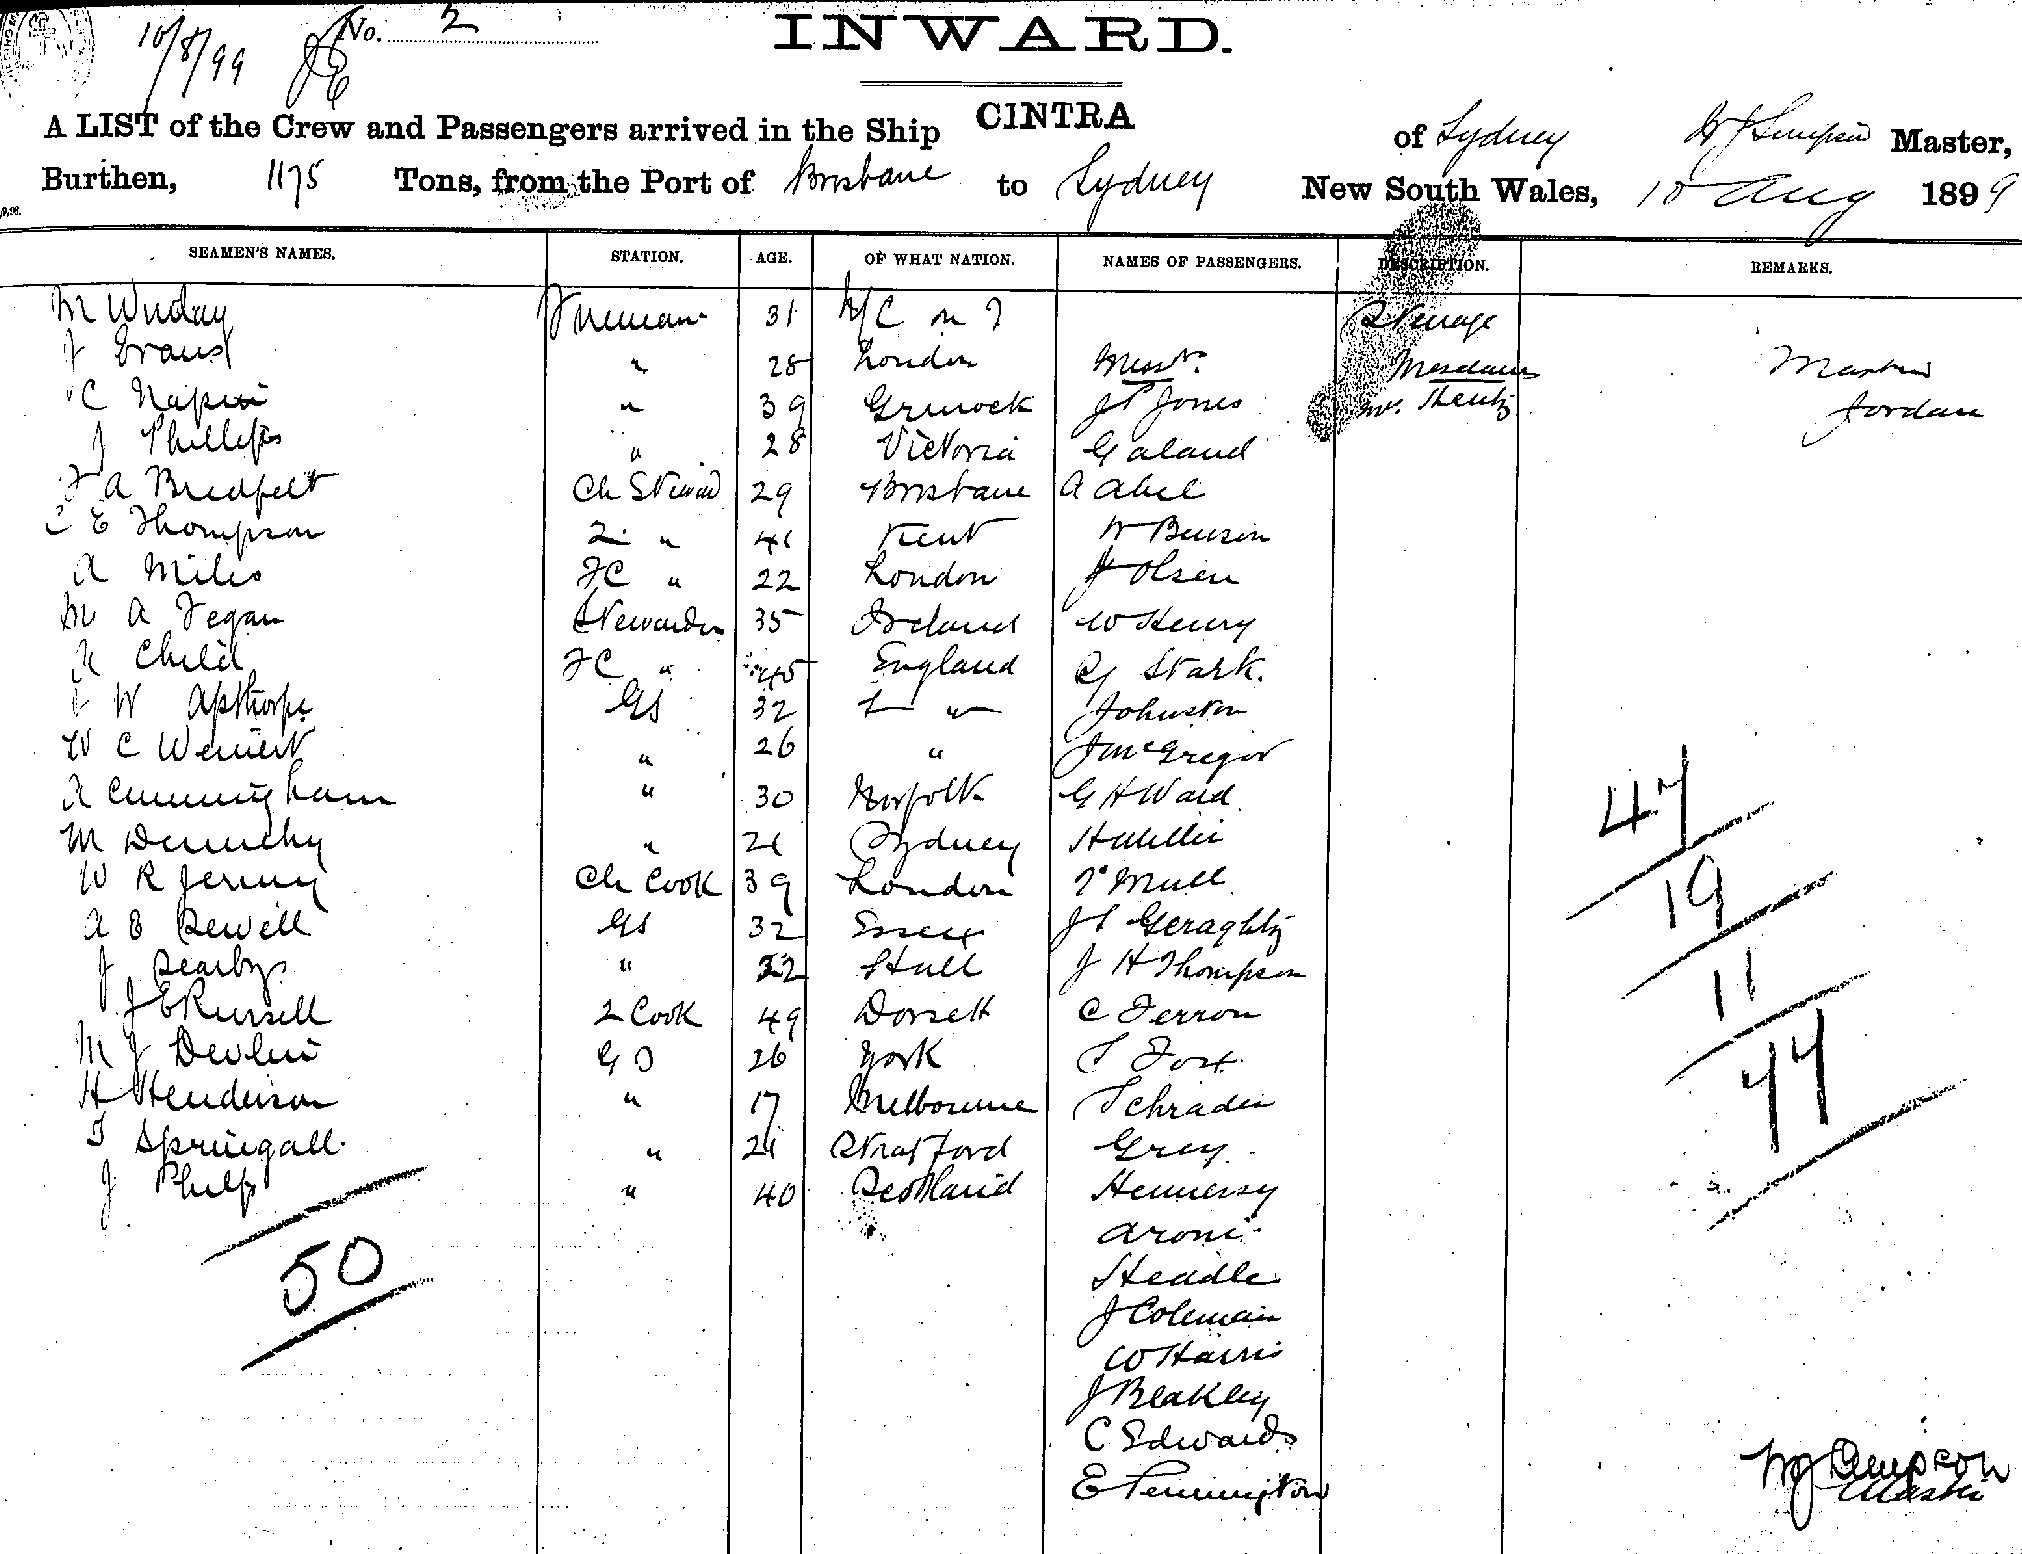 10/8/99 No. 2
INWARD.
A LIST of the Crew and Passengers arrived in the Ship CINTRA of Sydney W J Simpson Master,
Burthen, 1175 Tons, from the Port of Brisbane to Sydney New South Wales, 10 Aug 1899
SEAMEN'S NAMES. STATION. AGE. OF WHAT NATION. NAMES OF PASSENGERS. DESCRIPTION. REMARKS.
M Fireman 31 Steerage
J Evans " 28 London Messrs. Mesdames Master
C Napier " 39 Greenock J P Jones Mrs. Jordan
J Phillips " 28 Victoria Galand
F A Bredfelt Ch Steward 29 Brisbane A Abel
C E Thompson 2 " 41 Kent W Benson
A Miles FC " 22 London J Olsen
M A Fegan Stewardess 35 Ireland W Henry
A Child FC " 45 England G Stark.
W Apthorpe GS 32 " Johnston
W C Weinert " 26 " J McGregor
A Cunningham " 30 Norfolk G H Ward 47
M Dennehy " 21 Sydney H Willis
W R Jenny Ch Cook 39 London Mull 19
A E Sewell GS 32 Essex J Geraghty
J Searby " 22 Hull J H Thompson 11
J E Russell 2 Cook 49 Dorset C Ferron
M J Devlin GS 26 York Fox 44
H Henderson " 17 Melbourne Schrader
T Springall " 21 Stratford Grey
J Philp " 40 Scotland Hennessy
Aroni
50 Headle
J Coleman
W Harris
J Blakley
C Edwards
E Pennington
W J Simpson
Master